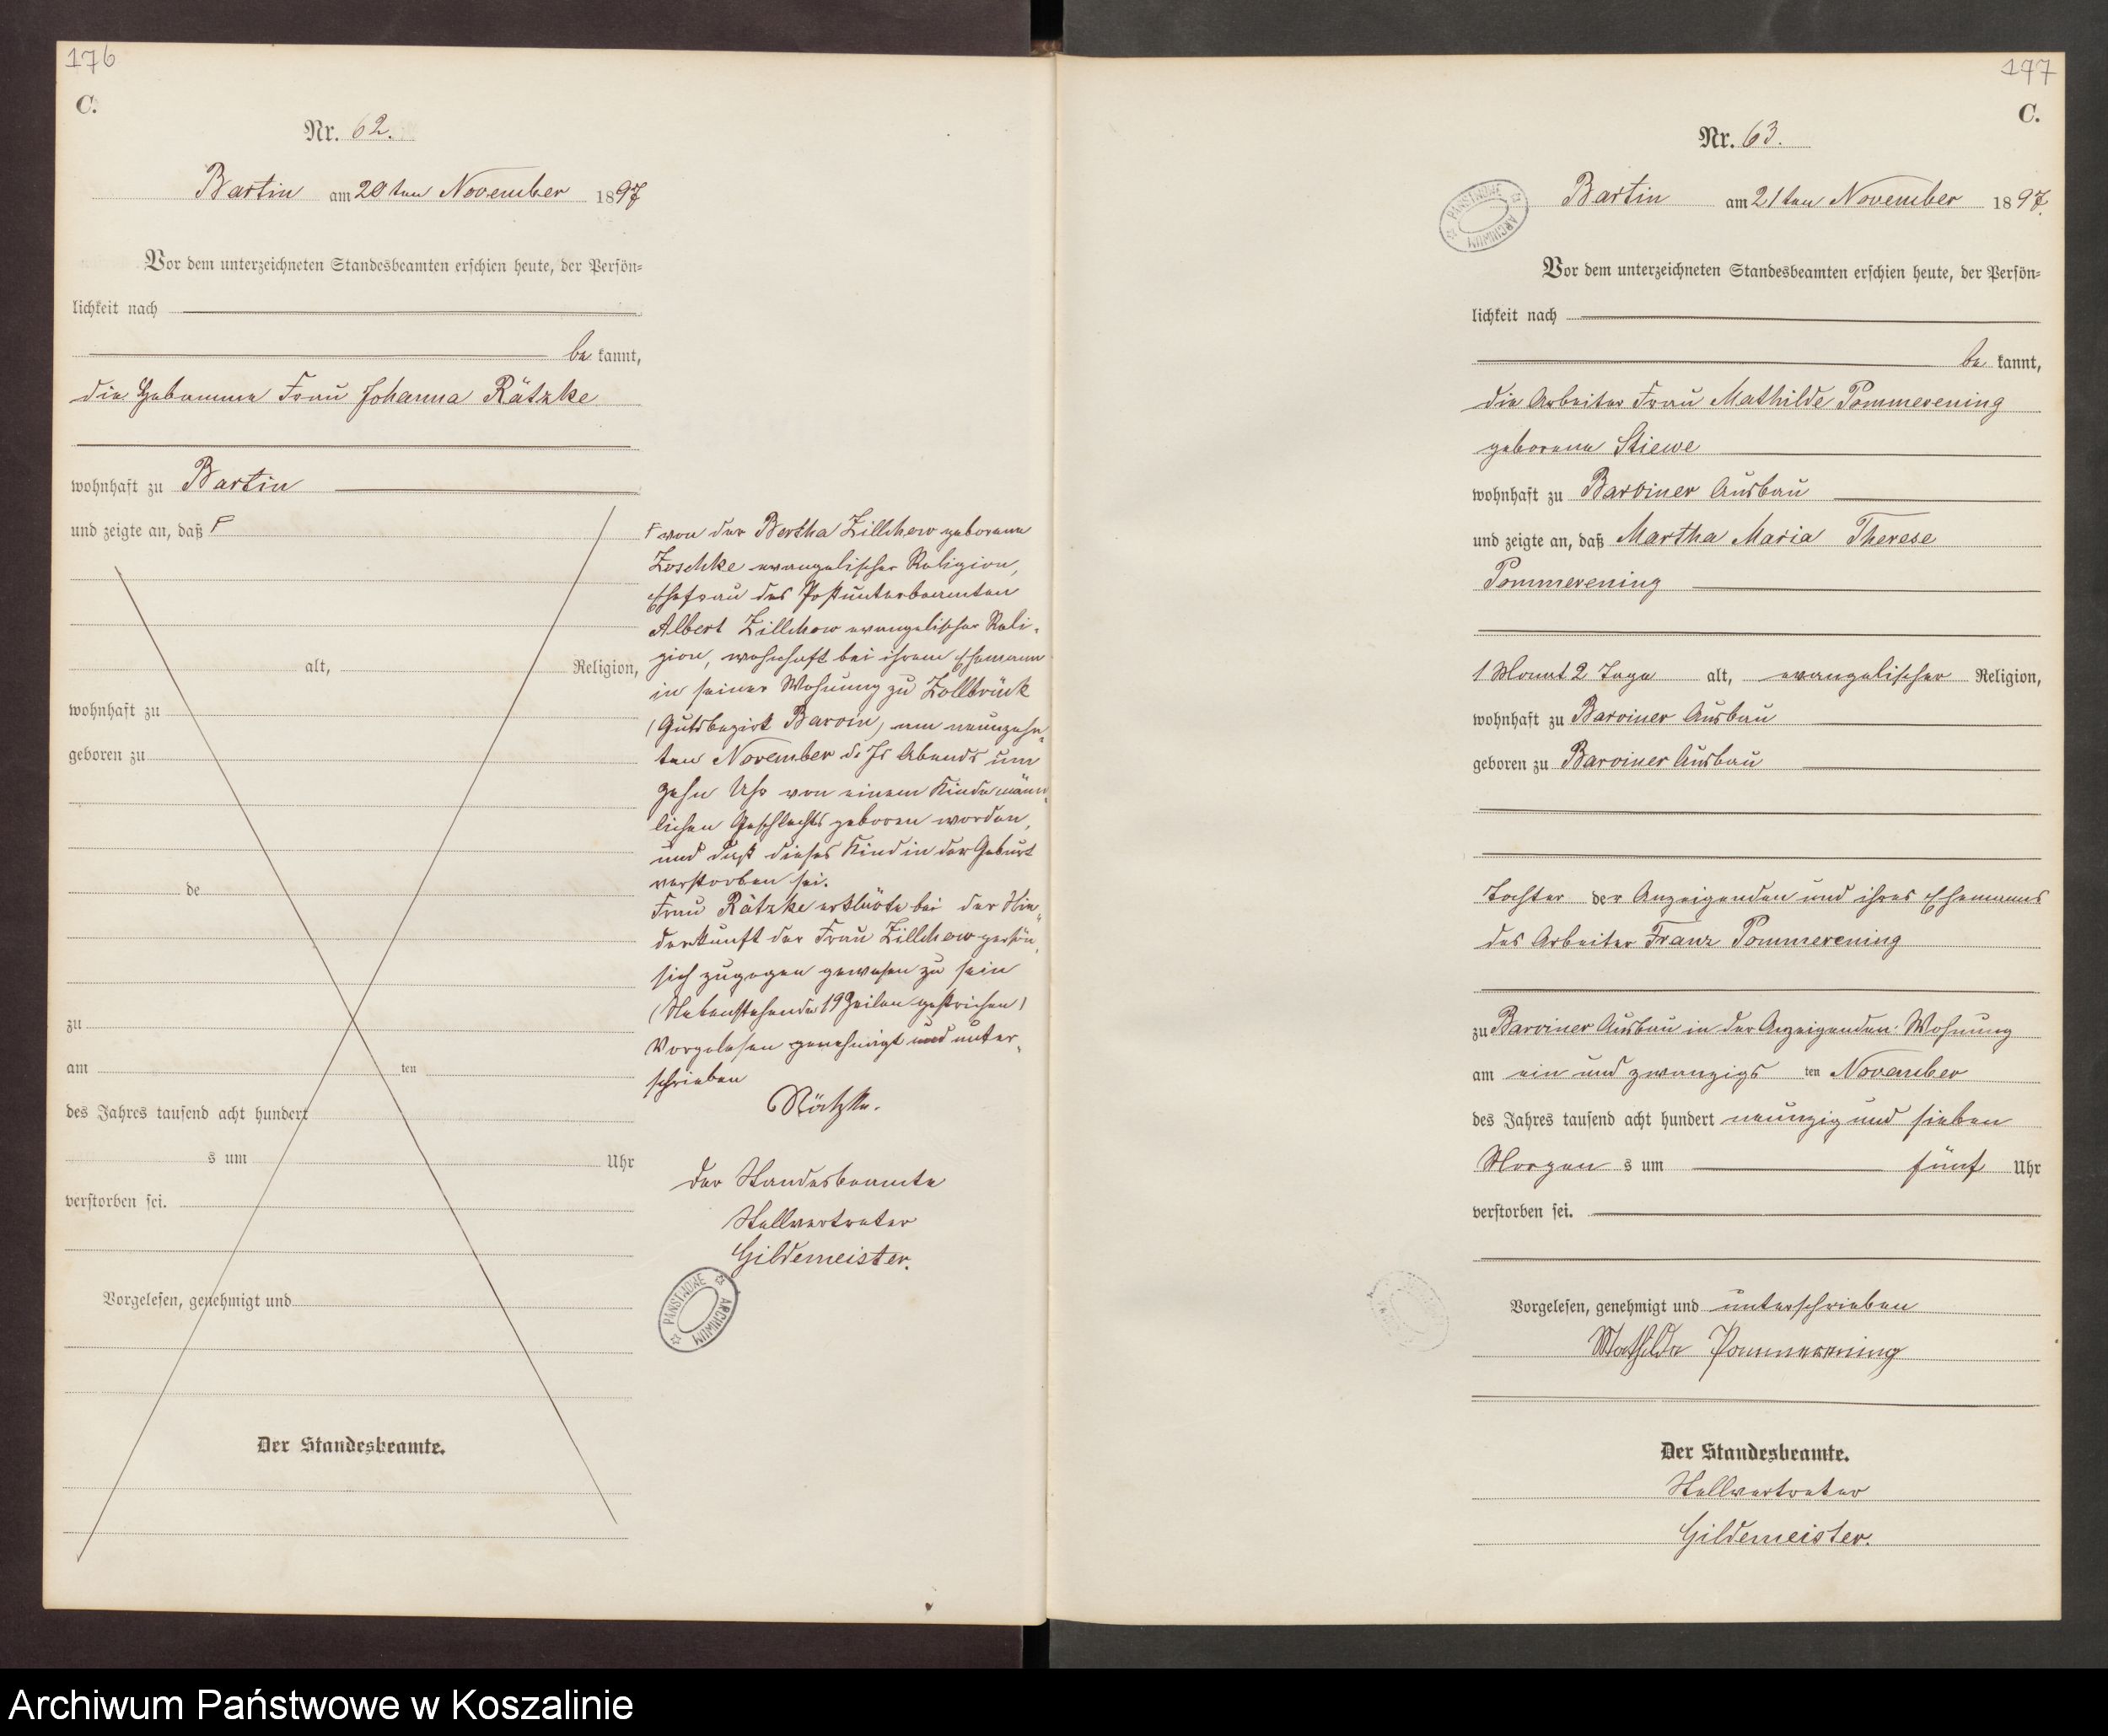 176
C.
Nr. 62.
Bartin am 20ten November 1897
Vor dem unterzeichneten Standesbeamten erschien heute, der Persön-
lichkeit nach
be kannt,
die Hebamme Frau Johanna Rätzke
wohnhaft zu Bartin
und zeigte an, daß Γ
alt, Religion,
wohnhaft zu
geboren zu
de
zu
am ten
des Jahres tausend acht hundert
s um Uhr
verstorben sei.
Vorgelesen, genehmigt und
Der Standesbeamte.
Γ von der Bertha Zillchow geborene
Zoschke evangelischer Religion,
Ehefrau des Postunterbeamten
Albert Zillchow evangelischer Reli-
gion, wohnhaft bei ihrem Ehemann
in seiner Wohnung zu Zollbrück
(Gutsbezirk Barvin) am neunzehn-
ten November d. Js Abends um
zehn Uhr von einem Kinde männ-
lichen Geschlechts geboren worden,
und daß dieses Kind in der Geburt
verstorben sei.
Frau Rätzke erklärte bei der Nie-
derkunft der Frau Zillchow persön-
lich zugegen gewesen zu sein
(Nebenstehende 19 Zeilen gestrichen)
Vorgelesen genehmigt und unter-
schrieben
Rätzke.
Der Standesbeamte
Stellvertreter
Gildemeister.
ARCHIWUM PAŃSTWOWE
177
C.
Nr. 63.
ARCHIWUM PAŃSTWOWE
Bartin am 21ten November 1897.
Vor dem unterzeichneten Standesbeamten erschien heute, der Persön-
lichkeit nach
be kannt,
die Arbeiter Frau Mathilde Pommerening
geborene Stiewe
wohnhaft zu Barviner Ausbau
und zeigte an, daß Martha Maria Therese
Pommerening
1 Monat 2 Tage alt, evangelischer Religion,
wohnhaft zu Barviner Ausbau
geboren zu Barviner Ausbau
Tochter der Anzeigenden und ihres Ehemanns
des Arbeiter Franz Pommerening
zu Barviner Ausbau in der Anzeigenden Wohnung
am ein und zwanzigs ten November
des Jahres tausend acht hundert neunzig und sieben
Morgen s um fünf Uhr
verstorben sei.
Vorgelesen, genehmigt und unterschrieben
Mathilde Pommerening
Der Standesbeamte.
Stellvertreter
Gildemeister.
Archiwum Państwowe w Koszalinie